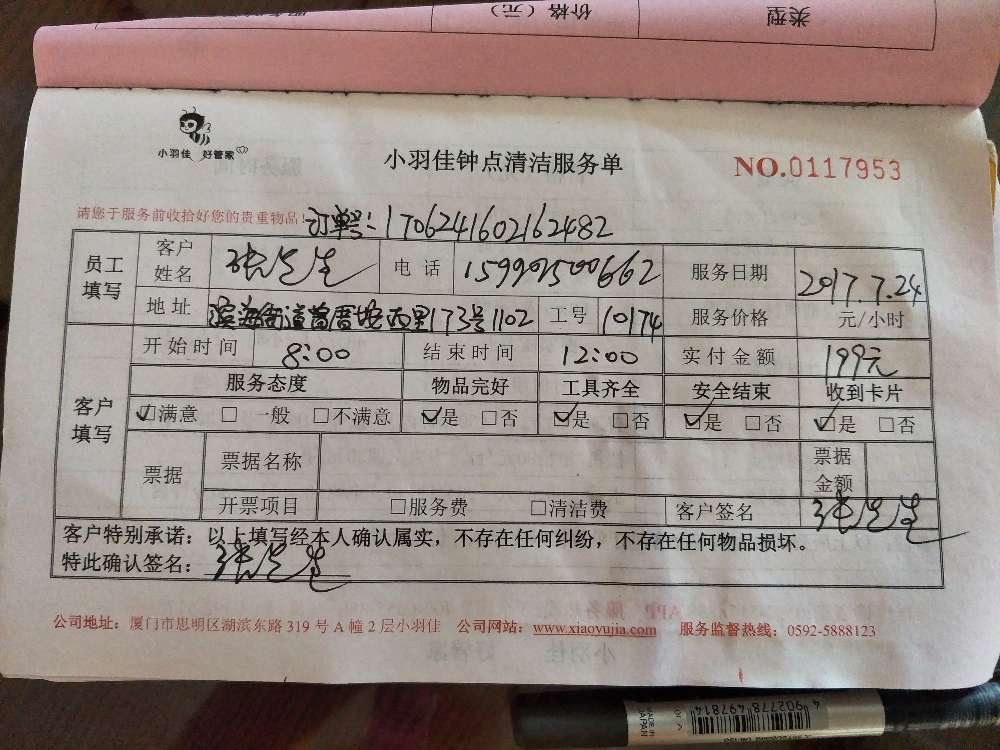 价格（元）
类型
小羽佳 好管家
小羽佳钟点清洁服务单
NO.0117953
请您于服务前收拾好您的贵重物品！
订单号：1706241602162482
员工填写
客户姓名 张先生 电话 15990500662 服务日期 2017.7.24
地址 滨海街道曾厝垵西里173号1102 工号 10174 服务价格 元/小时
客户填写
开始时间 8:00 结束时间 12:00 实付金额 199元
服务态度 物品完好 工具齐全 安全结束 收到卡片
☑满意 □一般 □不满意 ☑是 □否 ☑是 □否 ☑是 □否 ☑是 □否
票据 票据名称 票据金额
开票项目 □服务费 □清洁费 客户签名 张先生
客户特别承诺：以上填写经本人确认属实，不存在任何纠纷，不存在任何物品损坏。
特此确认签名：张先生
公司地址：厦门市思明区湖滨东路 319 号 A 幢 2 层小羽佳 公司网站：www.xiaoyujia.com 服务监督热线：0592-5888123
4 902778 497814
MADE IN JAPAN